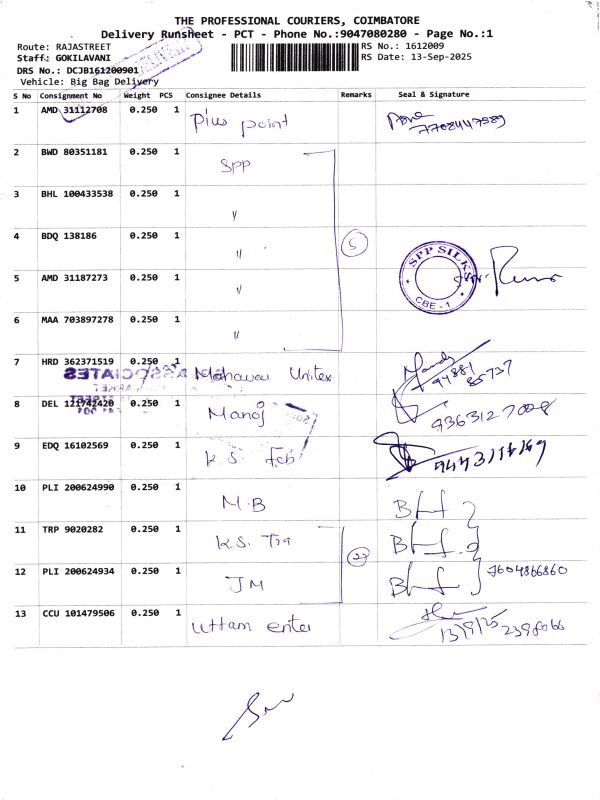 THE PROFESSIONAL COURIERS, COIMBATORE
Delivery Runsheet - PCT - Phone No.:9047080280 - Page No.:1
Route: RAJASTREET RS No.: 1612009
Staff: GOKILAVANI RS Date: 13-Sep-2025
DRS No.: DCJB161200901
Vehicle: Big Bag Delivery
S No Consignment No Weight PCS Consignee Details Remarks Seal & Signature
1 AMD 31112708 0.250 1 Pius point 7708447589
2 BWD 80351181 0.250 1 SPP
3 BHL 100433538 0.250 1 "
4 BDQ 138186 0.250 1 " 5
5 AMD 31187273 0.250 1 " SPP SILKS CBE - 1
6 MAA 703897278 0.250 1 "
7 HRD 362371519 0.250 1 Mahaveer Unitex 94881 85737
8 DEL 121742420 0.250 1 Manoj 9363127008
9 EDQ 16102569 0.250 1 K.S. Feb
10 PLI 200624990 0.250 1 M.B
11 TRP 9020282 0.250 1 K.S. Tra
12 PLI 200624934 0.250 1 JM 7604866860
13 CCU 101479506 0.250 1 Uttam enter 13/9/25